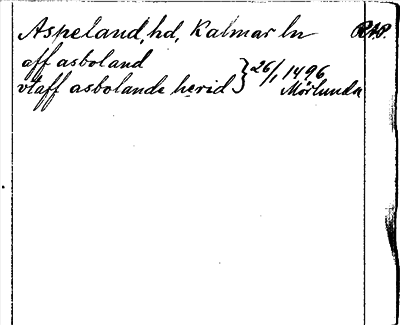 Aspeland, hd, Kalmar ln RAP.
aff asboland
vtaff asbolanda herid } 26/1 1496
Mörlunda